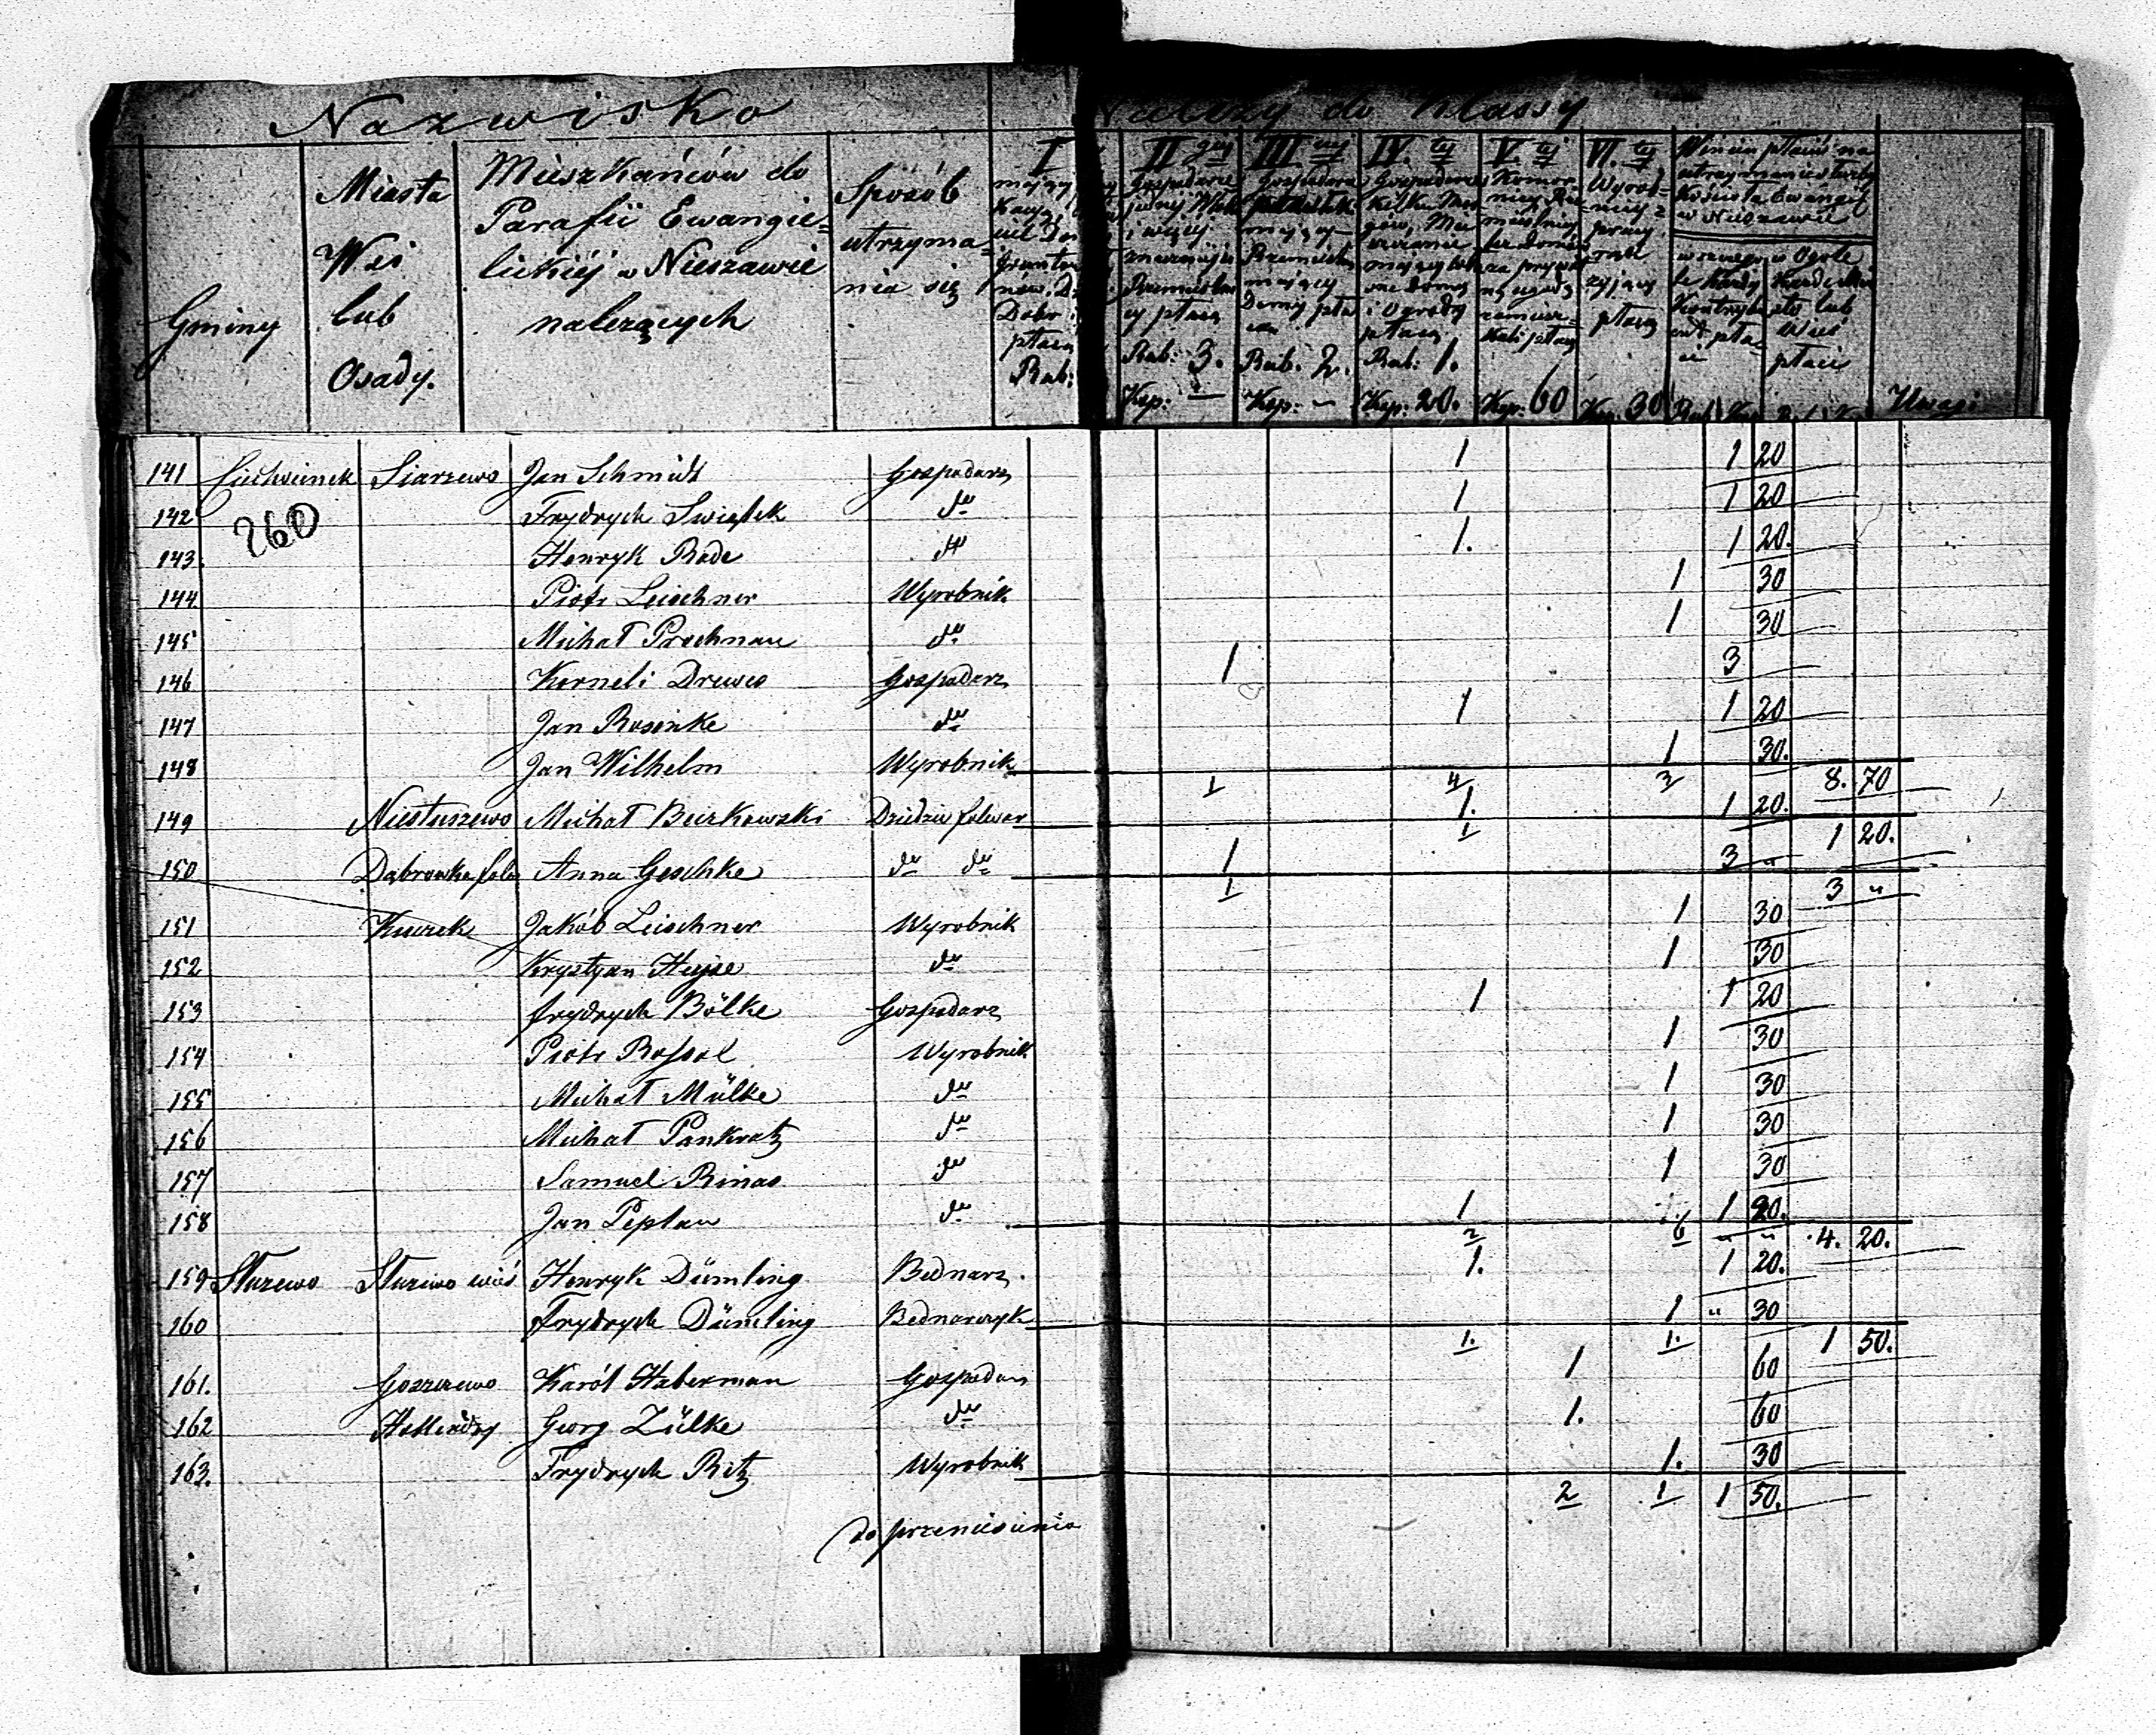 Nazwisko
Należy do Klassy
Gminy
Miasta
Wsi
lub
Osady.
Mieszkańców do
Parafii Ewangie=
lickiéj w Nieszawie
należących
Sposób
utrzyma=
nia się
I
płacą
Rub:
II giej
Gospodarze
i więcej
cy płacą
Rub: 3.
Kop: —
III ciej
Gospodarze
mający
mający
Domy pła
Rub. 2.
Kop: —
IV. tej
Gospodarze
i Ogrody
płacą
Rub: 1.
Kop: 20.
V. tej
Komor
Kop: 60
VI. tej
Wyrob=
nicy z
pracy
rąk
żyjący
płacą
Kop: 30
Winien płacić na
utrzymanie
Kościoła Ewangel
w Nieszawie
w Ogóle
lub
Wieś
płaci
Uwagi
141 Ciechocinek Siarzewo Jan Schmidt Gospodarz 1 1 20
142 Frydrych Swiątek du 1 1 20
260
143. Henryk Rode du 1. 1 20.
144 Piotr Leischner Wyrobnik 1 30
145 Michał Prochnau du 1 30
146 Korneli Drewes Gospodarz 1 3
147 Jan Rosinke du 1 1 20
148 Jan Wilhelm Wyrobnik 1 30.
1 4 3 8. 70
149 Niestuszewo Michał Burkowski Dziedzic folwar 1. 1 20.
1 1 20.
150 Dąbrowka folw Anna Geschke du du 1 3 "
1 3 "
151 Kuczek Jakób Leischner Wyrobnik 1 30
152 Krystyan Hejse du 1 30
153 frydrych Bölke Gospodarz 1 1 20
154 Piotr Rossol Wyrobnik 1 30
155 Michał Mülke du 1 30
156 Michał Pankratz du 1 30
157 Samuel Rinas du 1 30
158 Jan Peplau du 1 1 20.
2 6 " " 4. 20.
159 Słuzewo Słuzewo wieś Henryk Dümling Bednarz. 1. 1 20.
160 Frydrych Dümling Bednarczyk 1 " 30
1. 1. 1 50.
161. Goszczewo Karól Haberman Gospodarz 1 60
162 Hollendry Georg Zülke du 1. 60
163. Frydrych Ritz Wyrobnik 1. 30
2 1 1 50.
do przeniesienia